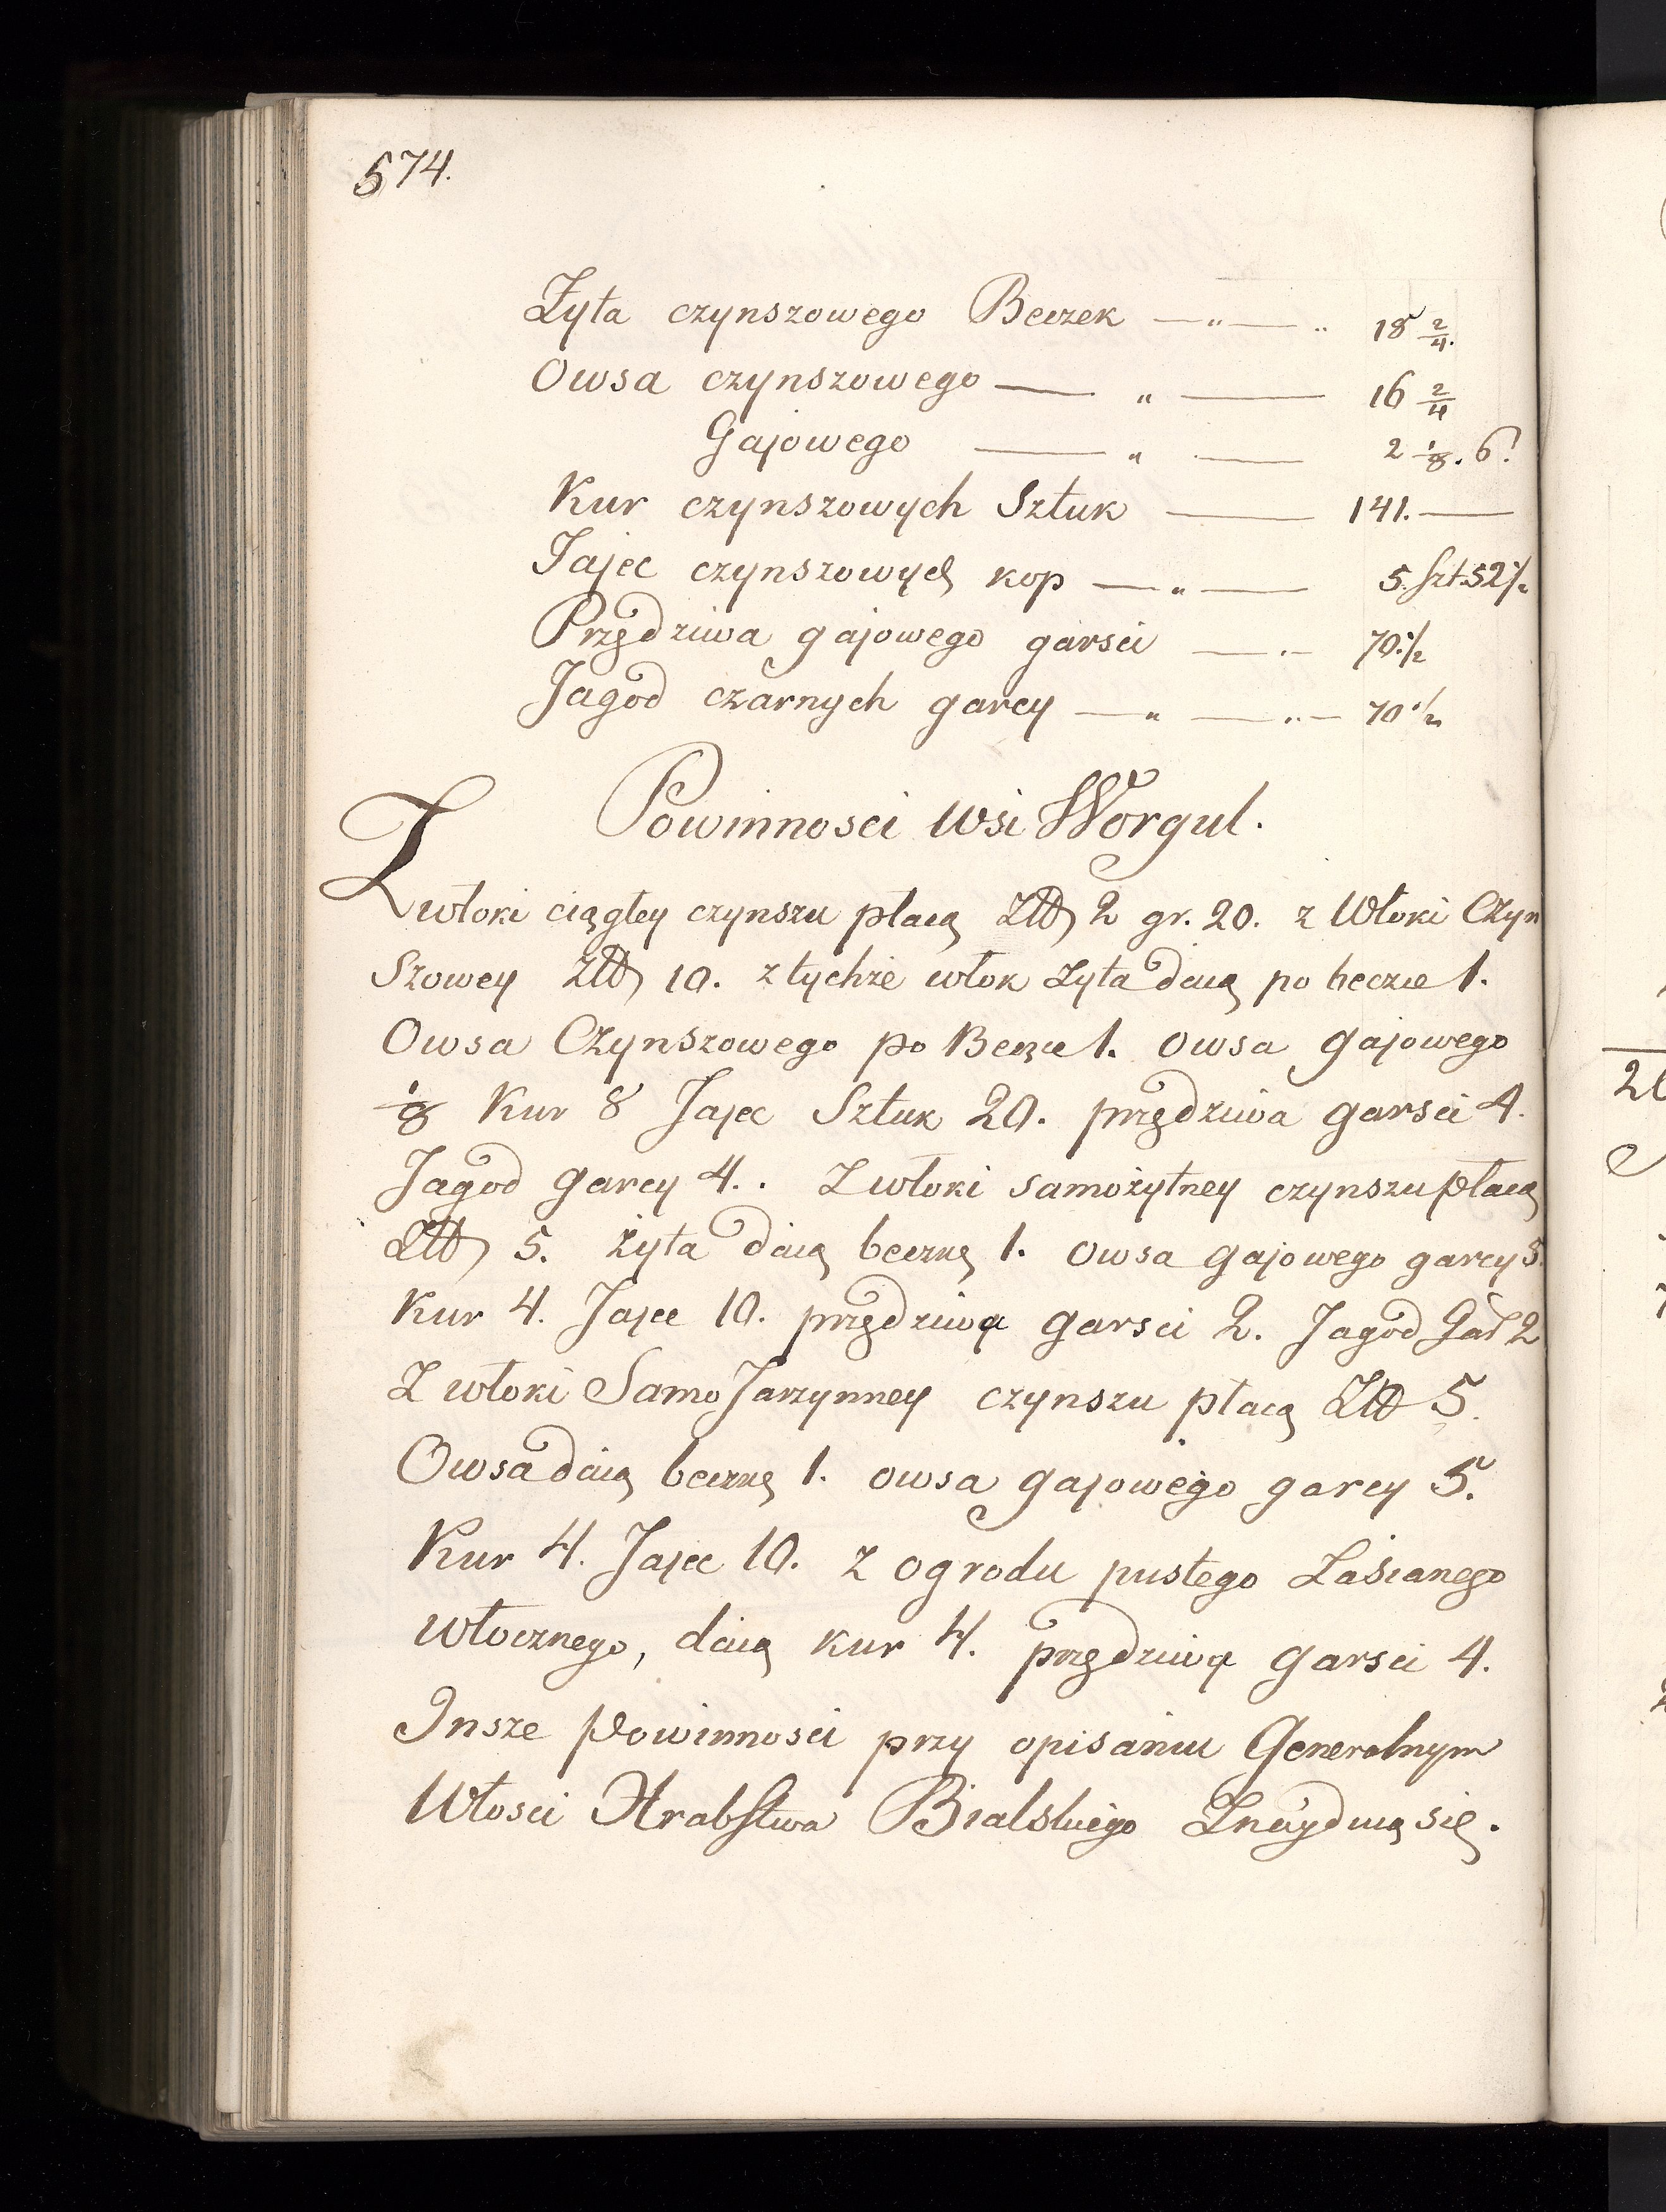 574.
Żyta czynszowego Beczek —„— „ 18 2/4.
Owsa czynszowego — „ — 16 2/4
Gajowego — „ — 2 1/8. 6.
Kur czynszowych Sztuk — 141. —
Jajec czynszowych kop —„— 5. Szt. 52 1/2
Przędziwa gajowego garsci — „ — 70. 1/2
Jagod czarnych garcy —„ —„— 70 1/2
Powinnosci Wsi Worgul.
Z włoki ciągłey czynszu płacą Złł 2 gr. 20. z Włoki Czyn
Szowey Złł 10. z tychże włok Żyta daią po beczce 1.
Owsa Czynszowego po Beczce 1. owsa gajowego
1/8 Kur 8 Jajec Sztuk 20. przędziwa garsci 4.
Jagod garcy 4.. Z włoki samożytney czynszu płacą
Złł 5. żyta daią beczkę 1. owsa gajowego garcy 5.
Kur 4. Jajec 10. przędziwa garsci 2. Jagod Gar 2
Z włoki Samo Jarzynney czynszu płacą Złł 5.
Owsa daią beczkę 1. owsa gajowego garcy 5.
Kur 4. Jajec 10. z ogrodu pustego Zaścianego
włocznego, daią kur 4. przędziwa garsci 4.
Insze Powinnosci przy opisaniu Generalnym
Włosci Hrabstwa Bialskiego Znaydują się.